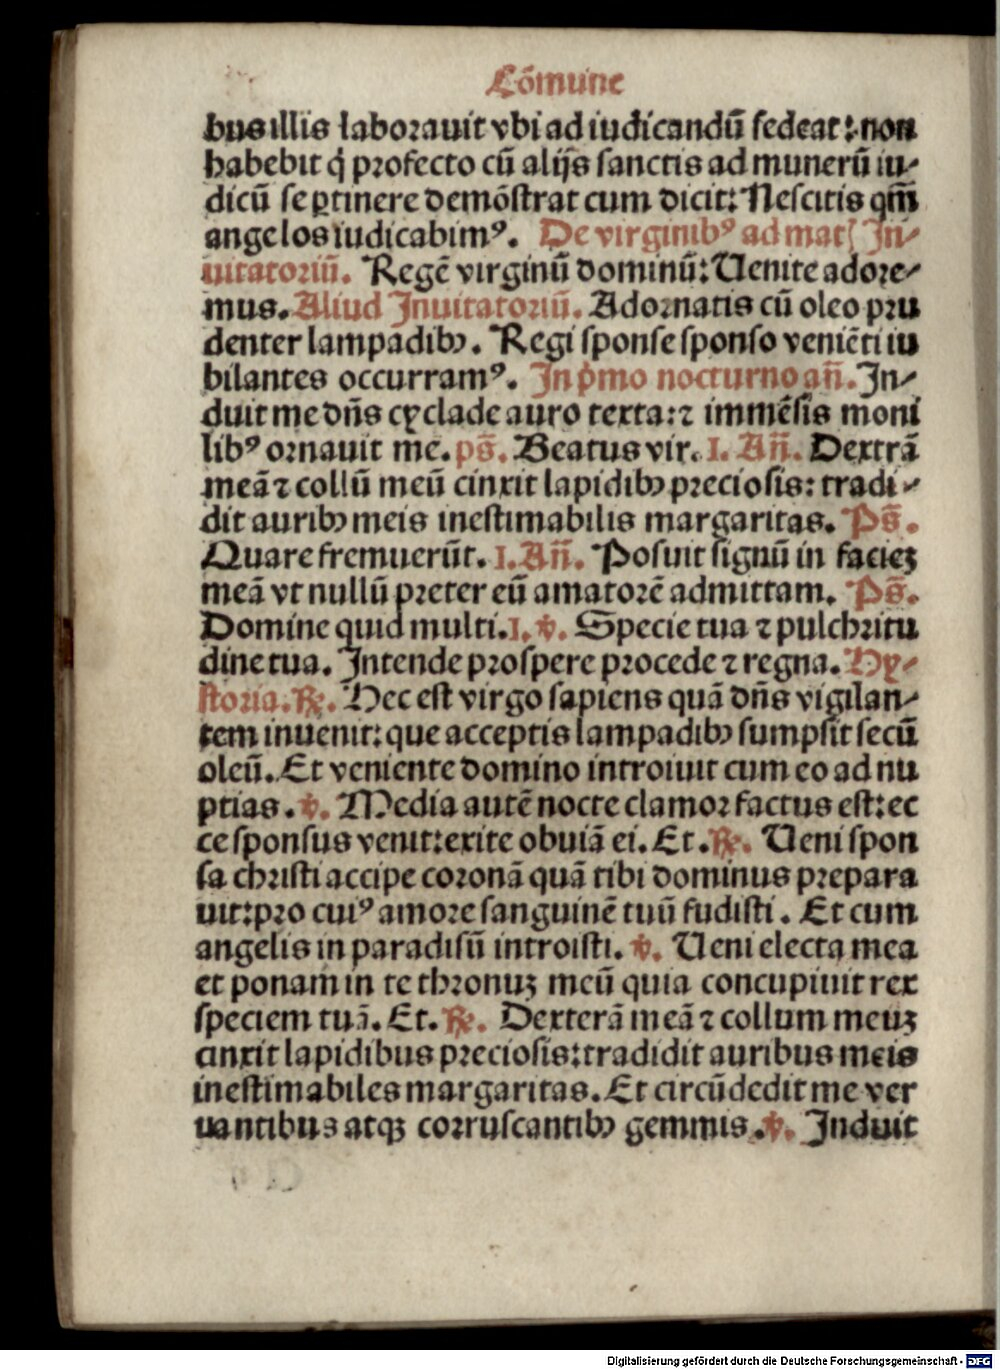 Cõmune
bus illis laborauit vbi ad iudicandũ sedeat: non
habebit q̇ profecto cũ alijs sanctis ad munerũ iu-
dicũ se ꝑtinere demõstrat cum dicit: Nescitis qm̃
angelos iudicabimꝰ. De virginibꝰ ad mat̃ In-
uitatoriũ. Regẽ virginũ dominũ: Uenite adore-
mus. Aliud Inuitatoriũ. Adornatis cũ oleo pru
denter lampadibꝫ. Regi sponse sponso veniẽti iu
bilantes occurramꝰ. In ṗmo nocturno añ. In-
duit me dñs cyclade auro texta: ⁊ immẽsis moni
libꝰ ornauit me. ps̃. Beatus vir. I. Añ. Dextrã
meã ⁊ collũ meũ cinxit lapidibꝫ preciosis: tradi-
dit auribꝫ meis inestimabilis margaritas. Ps̃.
Quare fremuerũt. I. Añ. Posuit signũ in facieꝫ
meã vt nullũ preter eũ amatorẽ admittam. Ps̃.
Domine quid multi. I. ꝟ. Specie tua ⁊ pulchritu
dine tua. Intende prospere procede ⁊ regna. Hy-
storia. ℞. Hec est virgo sapiens quã dñs vigilan-
tem inuenit: que acceptis lampadibꝫ sumpsit secũ
oleũ. Et veniente domino introiuit cum eo ad nu
ptias. ꝟ. Media autẽ nocte clamor factus est: ec
ce sponsus venit: exite obuiã ei. Et. ℞. Ueni spon
sa christi accipe coronã quã tibi dominus prepara
uit: pro cuiꝰ amore sanguinẽ tuũ fudisti. Et cum
angelis in paradisũ introisti. ꝟ. Ueni electa mea
et ponam in te thronuꝫ meũ quia concupiuit rex
speciem tuã. Et. ℞. Dexterã meã ⁊ collum meuꝫ
cinxit lapidibus preciosis: tradidit auribus meis
inestimabiles margaritas. Et circũdedit me ver
nantibus atqꝫ corruscantibꝫ gemmis. ꝟ. Induit
Digitalisierung gefördert durch die Deutsche Forschungsgemeinschaft - DFG